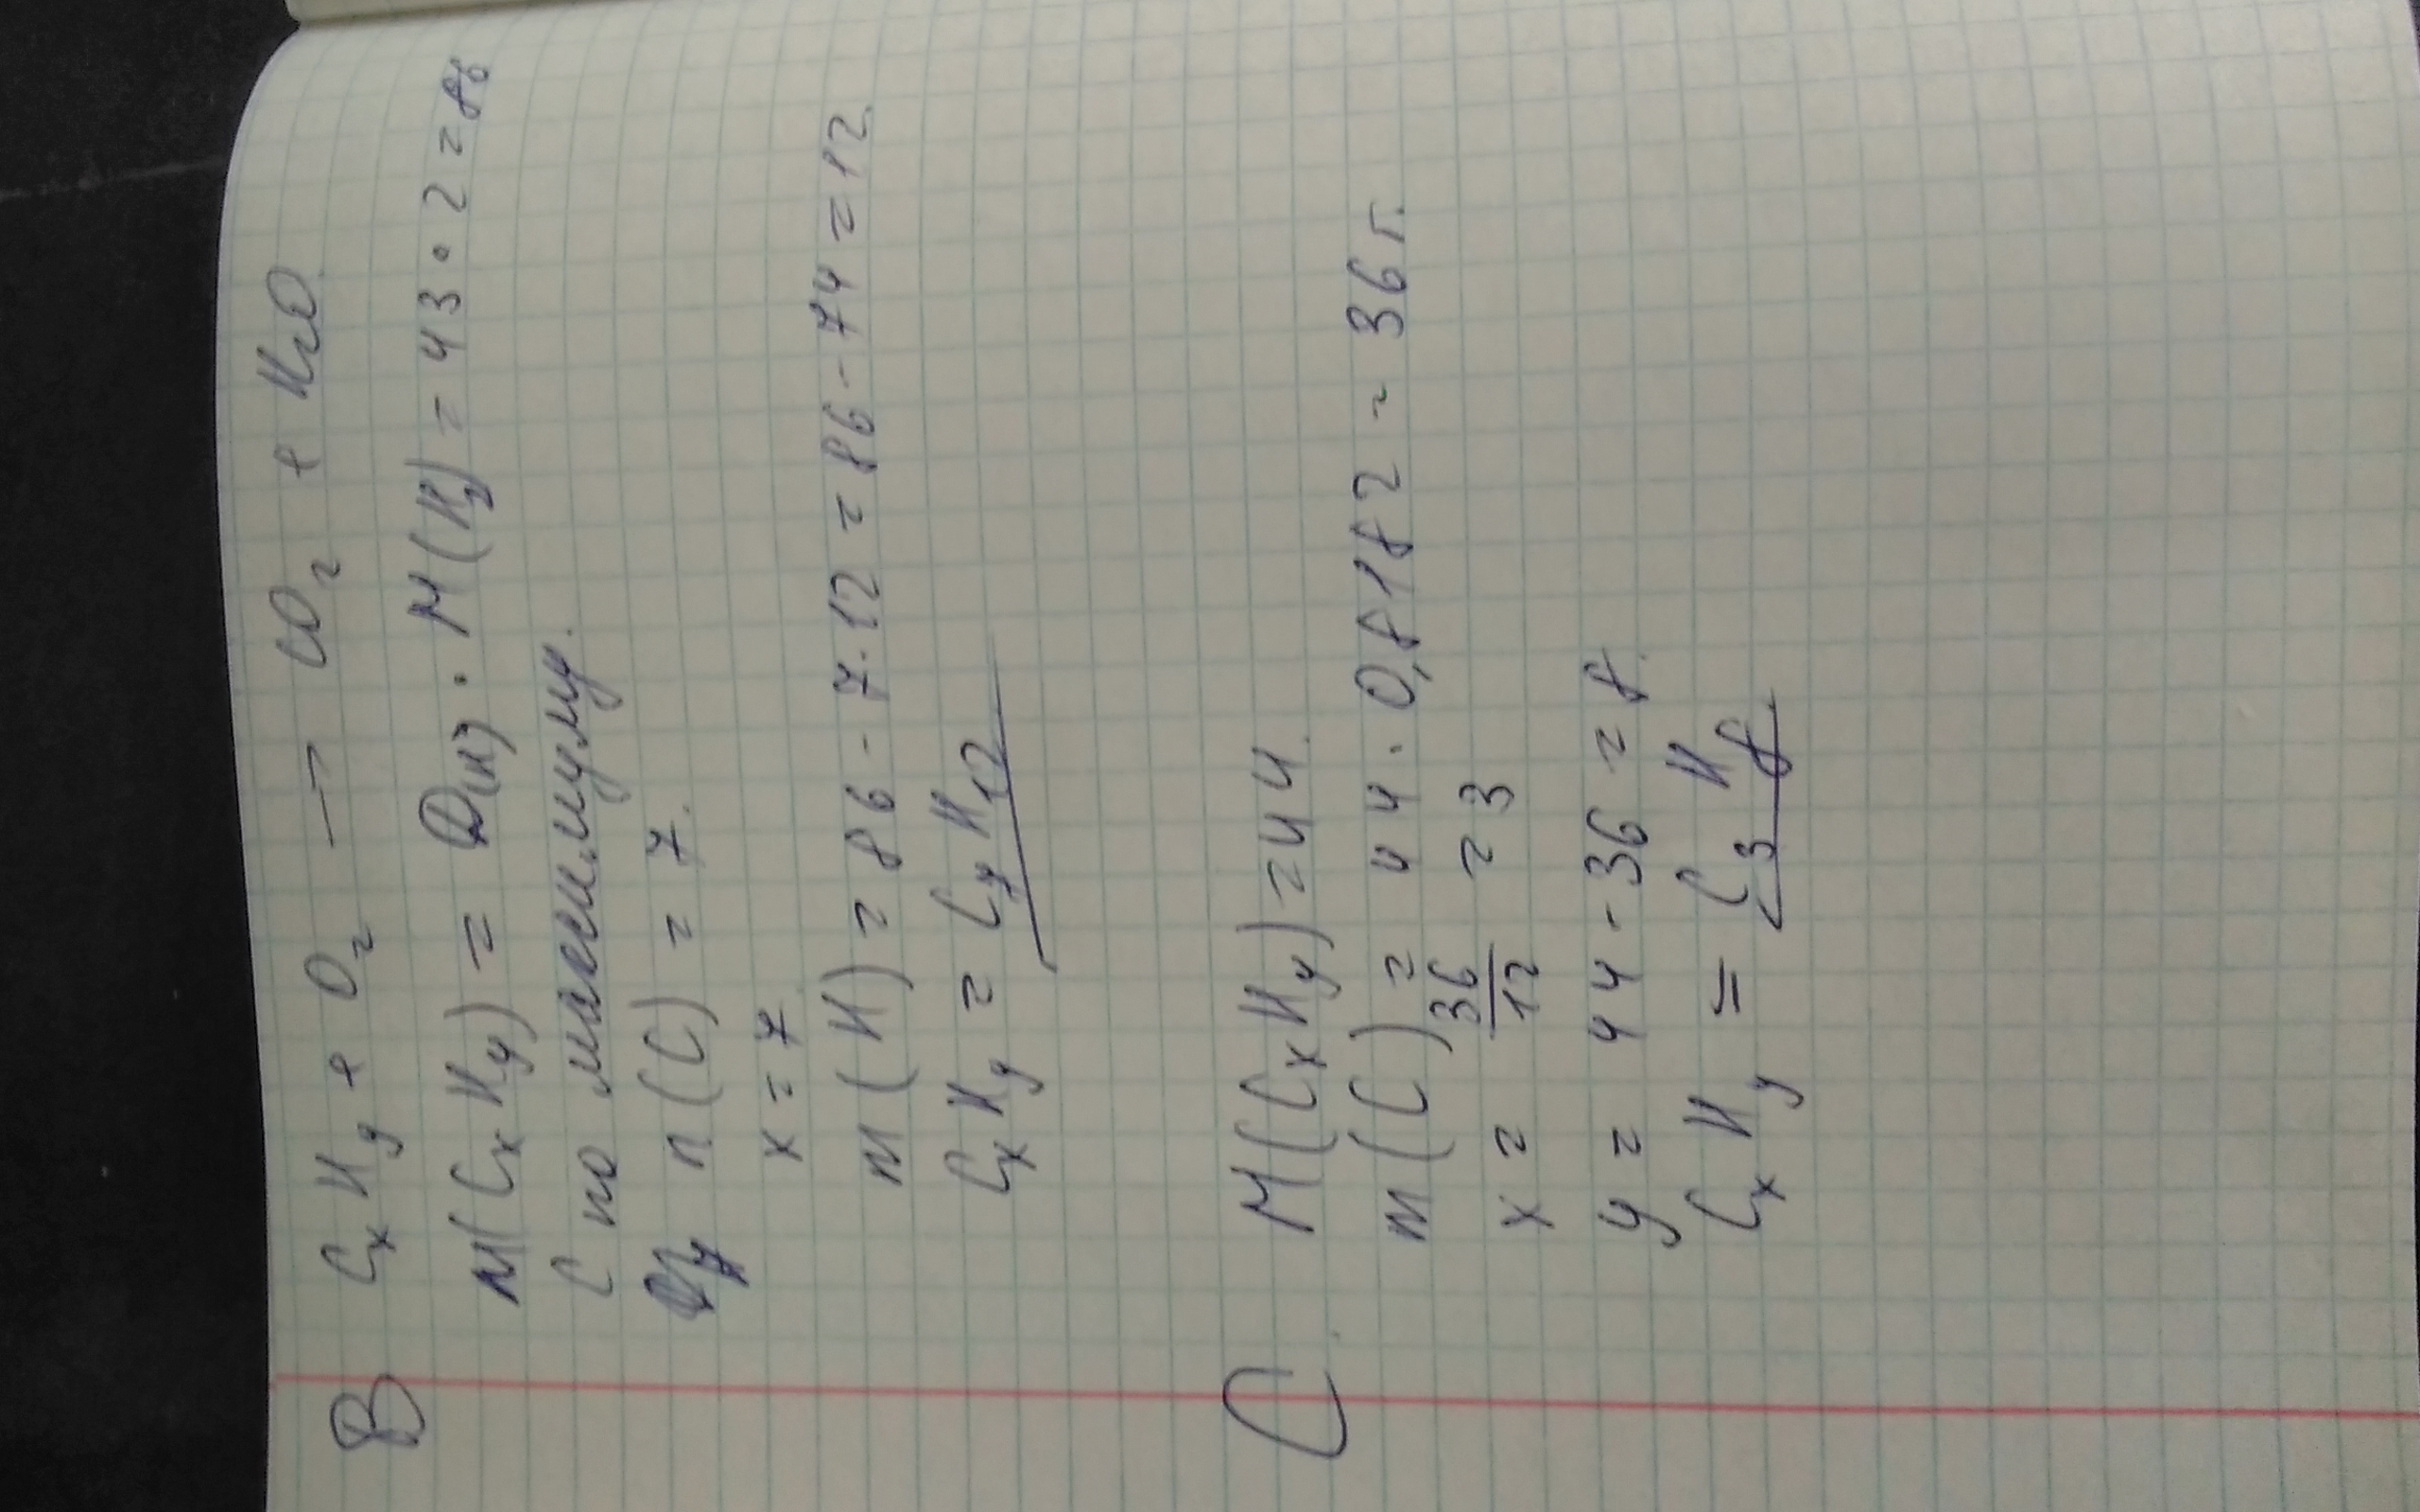 B CxHy + O2 → CO2 + H2O
M(CxHy) = D(H2) · M(H2) = 43 · 2 = 86
C по максимуму.
n(C) = 7.
x = 7
m(H) = 86 - 7 · 12 = 86 - 74 = 12.
CxHy = C7H12
C. M(CxHy) = 44.
m(C) = 44 · 0,8182 = 36 г.
x = 36/12 = 3
y = 44 - 36 = 8.
CxHy = C3H8